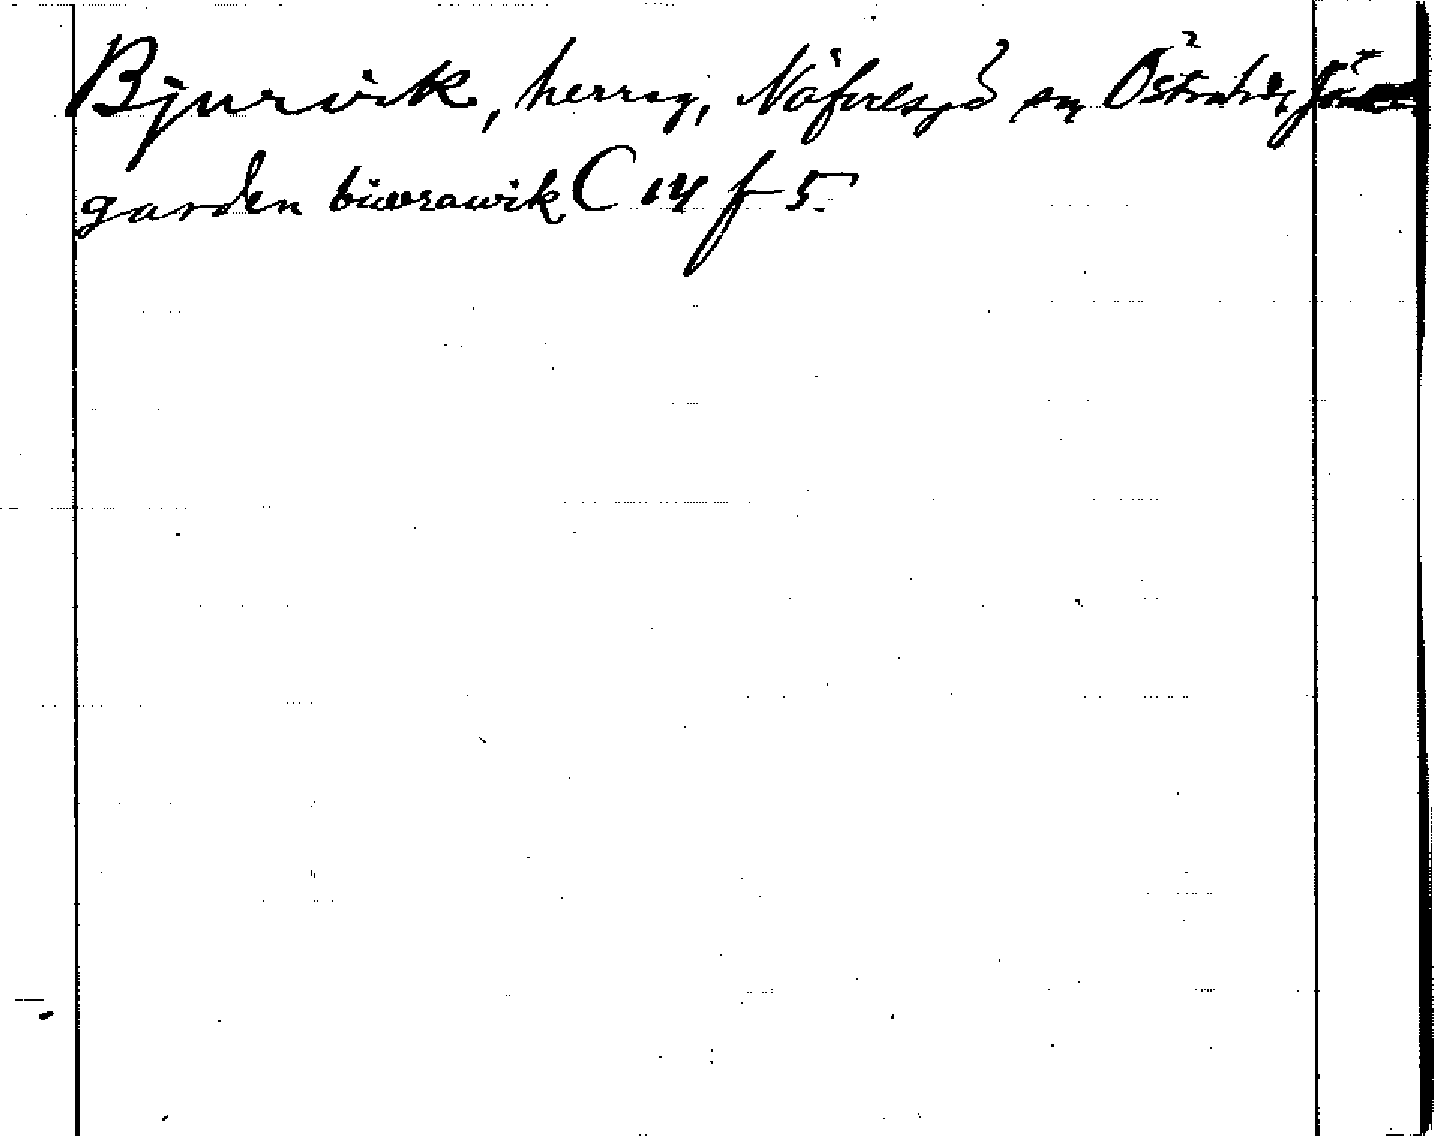 Bjurvik, herrg, Näfvelsjö sn Östra hd, Jön
garden biwrawik C 14 f 5.